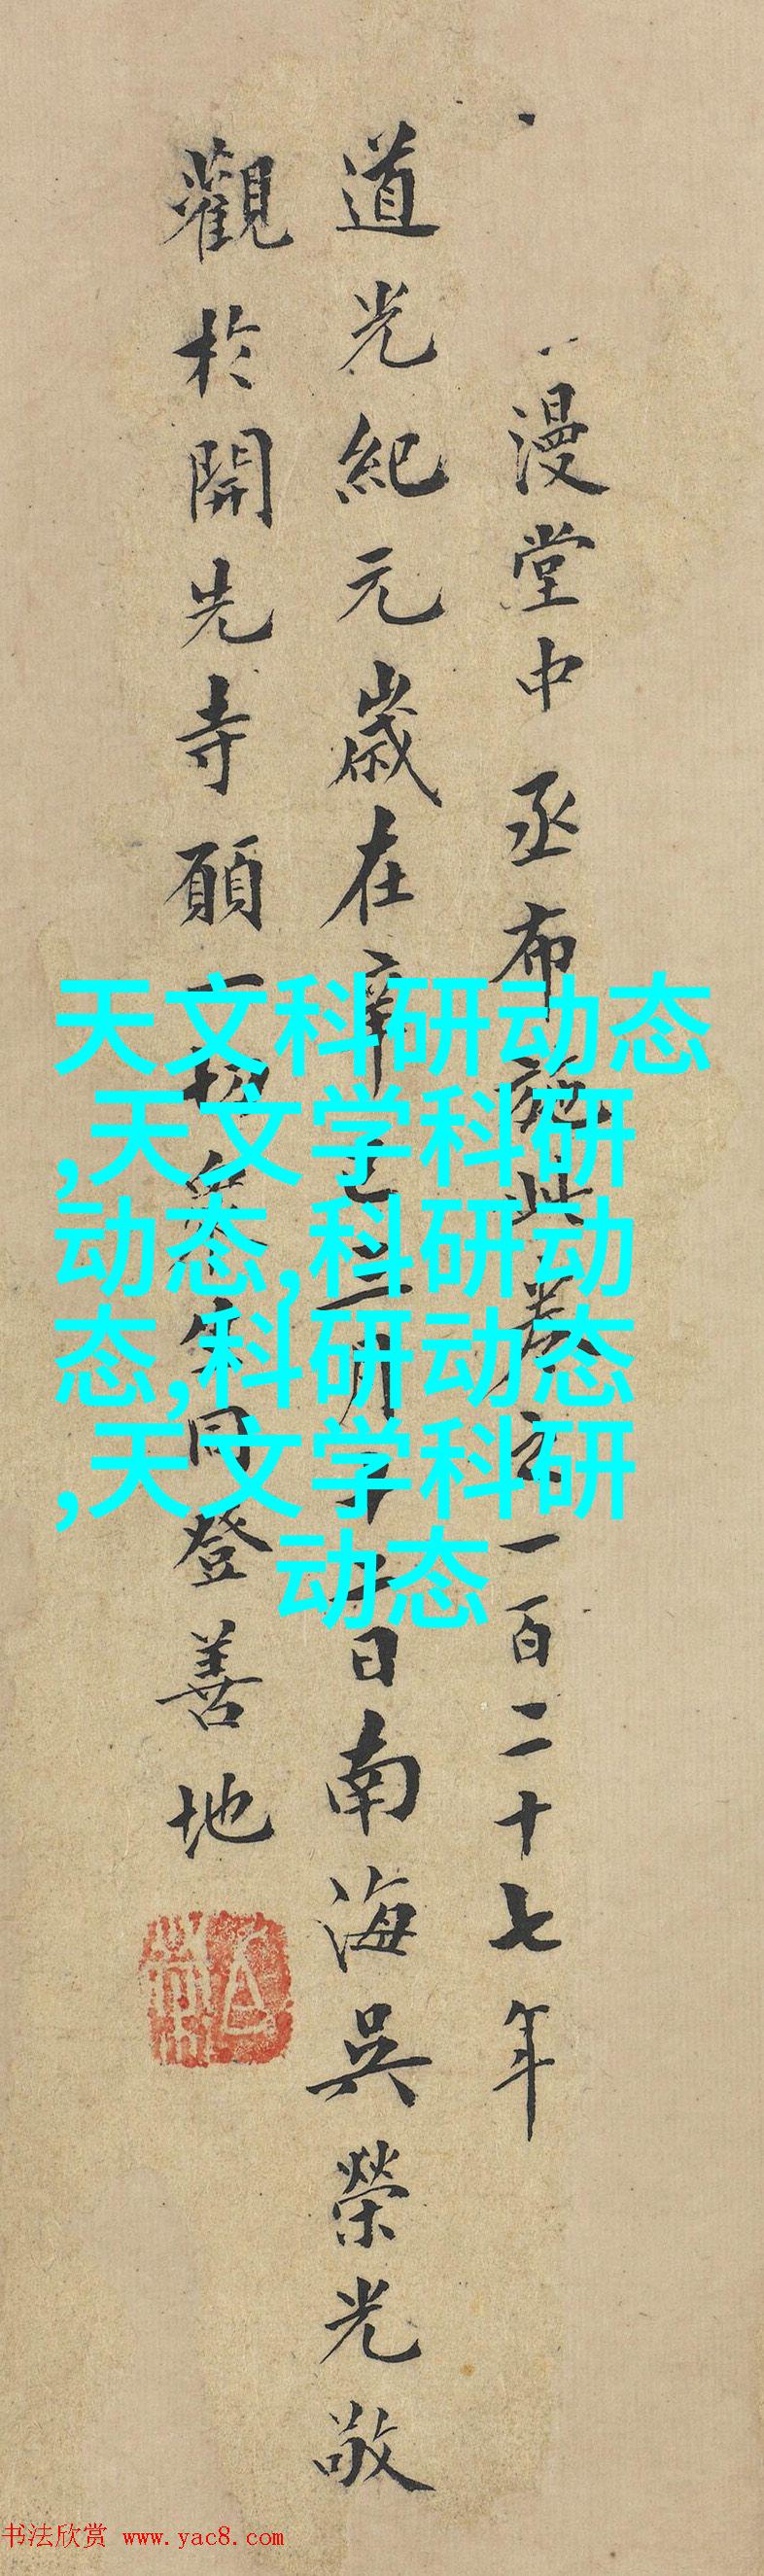 漫堂中丞布施此卷之一百二十七年
道光紀元歲在辛巳三月十五日南海吳榮光敬
觀於開先寺願一切眾生同登善地
天文科研动态
,天文学科研
动态,科研动
态,科研动态
,天文学科研
动态
书法欣赏 www.yac8.com